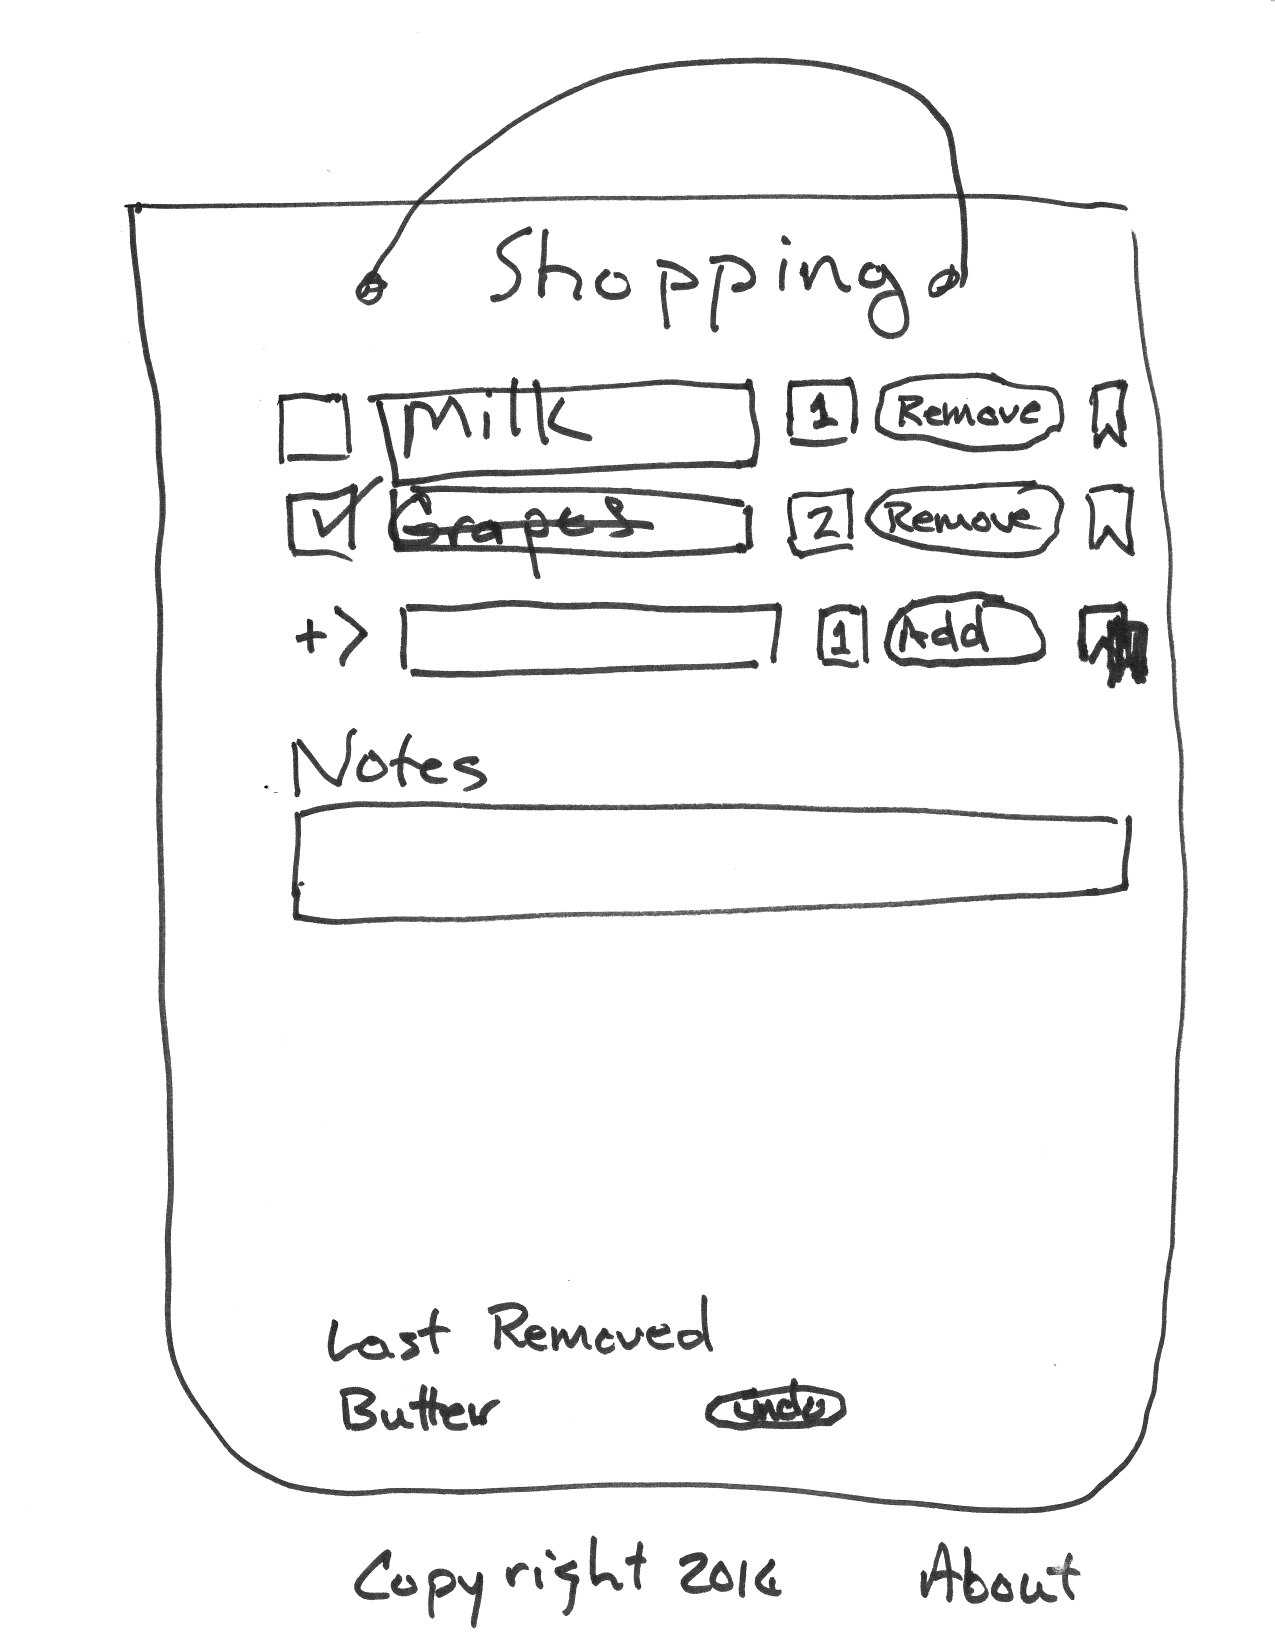 Shopping
Milk 1 Remove
Grapes 2 Remove
+> 1 Add
Notes
Last Removed
Butter undo
Copyright 2016 About